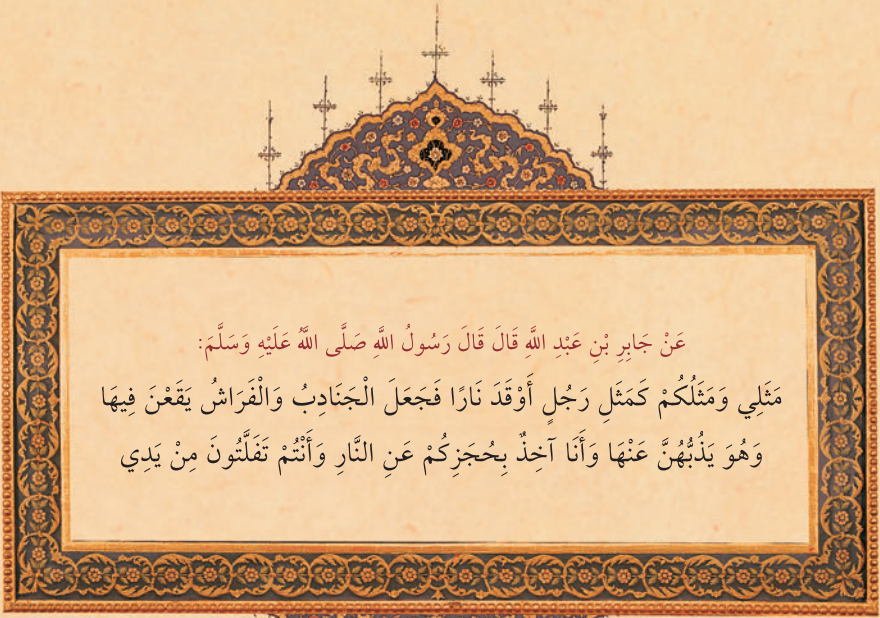 عَنْ جَابِرِ بْنِ عَبْدِ اللَّهِ قَالَ قَالَ رَسُولُ اللَّهِ صَلَّى اللَّهُ عَلَيْهِ وَسَلَّمَ:
مَثَلِي وَمَثَلُكُمْ كَمَثَلِ رَجُلٍ أَوْقَدَ نَارًا فَجَعَلَ الْجَنَادِبُ وَالْفَرَاشُ يَقَعْنَ فِيهَا
وَهُوَ يَذُبُّهُنَّ عَنْهَا وَأَنَا آخِذٌ بِحُجَزِكُمْ عَنِ النَّارِ وَأَنْتُمْ تَفَلَّتُونَ مِنْ يَدِي